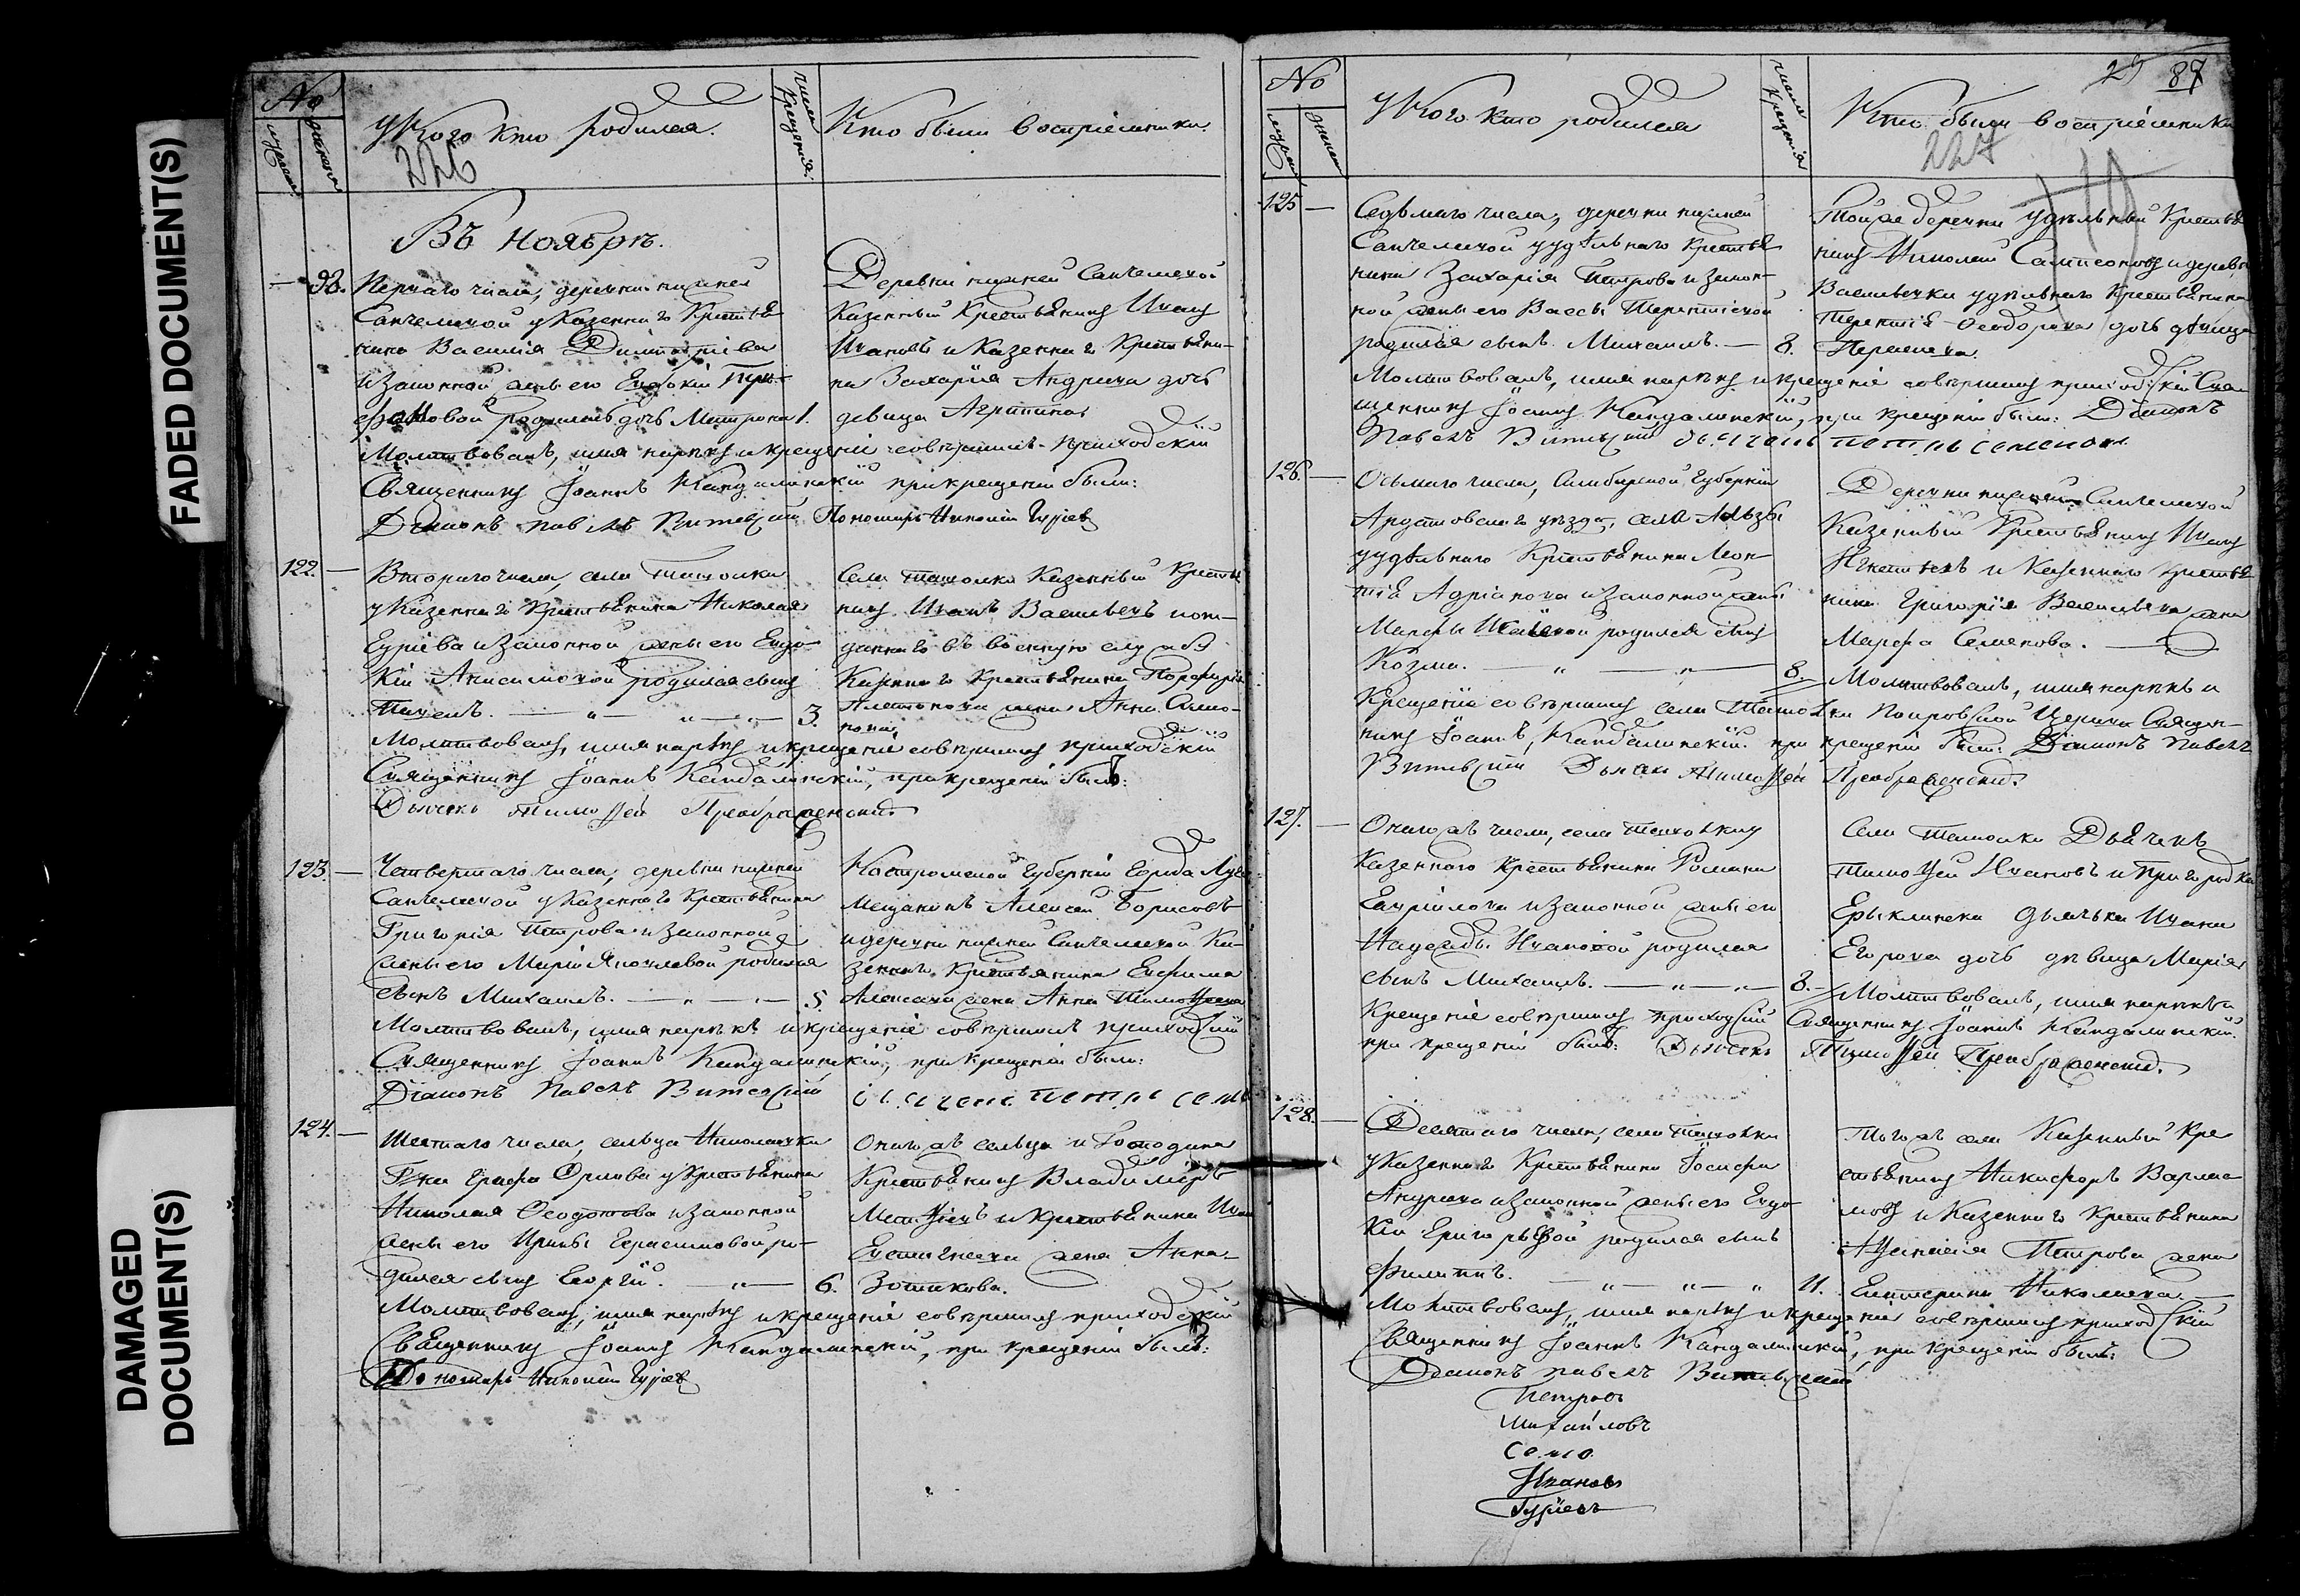 FADED DOCUMENT(S)
DAMAGED
DOCUMENT(S)
No
мужеска
женска
У кого кто родился.
числа крещенія.
Кто были воспріемники.
226
Въ Ноябрѣ.
98. Перваго числа, деревни нижней
Санчелеевой у казеннаго крестья
нина Василія Димитріева
и законной жены его Евдокіи
родилась дочь Матрона 1.
Деревни нижней Санчелеевой
казенный крестьянинъ Иванъ
Ивановъ и казеннаго крестьяни-
на Захарія Андреева дочь
девица Агрипина
Молитвовалъ, имя нарекъ и крещеніе совершилъ приходскій
Священникъ Іоаннъ Кандалинскій при крещеніи были:
Діаконъ Павелъ Витевскій Пономарь Николай Гурьевъ
122. Втораго числа, села Ташолки
у казеннаго крестьянина Николая
Гурьева и законной жены его Евдо-
кіи Анисимовой родился сынъ
3.
Села Ташолки казенный крестья
нинъ Иванъ Васильевъ и от-
даннаго въ военную службу
казеннаго крестьянина Порфирія
жена Анна
Молитвовалъ, имя нарекъ и крещеніе совершилъ приходскій
Священникъ Іоаннъ Кандалинскій, при крещеніи былъ:
Дьячекъ Тимофей Преображенскій
123. Четвертаго числа, деревни нижней
Санчелеевой у казеннаго крестьянина
Григорія Петрова и законной
жены его Маріи Яковлевой родился
сынъ Михаилъ. 5.
Костромской Губерніи города Луха
мещанинъ Алексей Борисовъ
и деревни нижней Санчелеевой ка-
зеннаго крестьянина Ефима
Алексеева жена Анна Тимофеева
Молитвовалъ, имя нарекъ и крещеніе совершилъ приходскій
Священникъ Іоаннъ Кандалинскій, при крещеніи были:
Діаконъ Павелъ Витевскій
124. Шестаго числа, сельца Николаевки
Г-на Графа Орлова у крестьянина
Николая Феодотова и законной
жены его Ирины Герасимовой ро-
дился сынъ Георгій. 6.
Онаго жъ сельца и Господина
крестьянинъ Владимеръ
Матфеевъ и крестьянина Ивана
Евстигнеева жена Анна
Зотикова.
Молитвовалъ, имя нарекъ и крещеніе совершилъ приходскій
Священникъ Іоаннъ Кандалинскій, при крещеніи былъ:
Пономарь Николай Гурьевъ
No
мужеска
женска
У кого кто родился
числа крещенія
Кто были воспріемники
29 87
227
125 Седьмаго числа, деревни нижней
Санчелеевой у удѣльнаго крестья
нина Захарія Петрова и закон-
ной жены его Вассы Терентіевой
родился сынъ Михаилъ. 8.
Той же деревни удѣльный крестья
нинъ Николай Сампсоновъ и деревни
Васильевки удѣльнаго крестьянина
Терентія Феодорова дочь дѣвица
Молитвовалъ, имя нарекъ и крещеніе совершилъ приходскій Свя-
щенникъ Іоаннъ Кандалинскій, при крещеніи были: Діаконъ
Павелъ Витевскій дьячекъ Петръ Семеновъ
126. Осьмаго числа, Симбирской Губерніи
Ардатовскаго уѣзда, села
у удѣльнаго крестьянина Леон-
тія Адріанова и законной жены
Марфы родился сынъ
Козма. 8.
Деревни нижней Санчелеевой
казенный крестьянинъ Иванъ
и казеннаго крестья
нина Григорія Васильева жена
Марфа Семенова.
Молитвовалъ, имя нарекъ и
крещеніе совершилъ села Ташолки Покровской Церкви Священ-
никъ Іоаннъ Кандалинскій при крещеніи были: Діаконъ Павелъ
Витевскій Дьячекъ Тимофей Преображенскій
127. Онаго жъ числа, села Ташолки у
казеннаго крестьянина Романа
Гаврилова и законной жены его
Надежды Ивановой родился
сынъ Михаилъ. 8.
Села Ташолки Дьячекъ
Тимофей Ивановъ и пригородка
Ерыклинска дьячка Ивана
Егорова дочь дѣвица Марія
Молитвовалъ, имя нарекъ и
крещеніе совершилъ приходскій Священникъ Іоаннъ Кандалинскій.
при крещеніи былъ: Дьячекъ Тимофей Преображенскій.
128. Десятаго числа, села Ташолки
у казеннаго крестьянина Іосифа
Андреева и законной жены его Евдо-
кіи Григорьевой родился сынъ
Филиппъ. 11.
Того жъ села казенный кре
стьянинъ Никифоръ Варла-
мовъ и казеннаго крестьянина
Афанасія Петрова жена
Екатерина Николаева.
Молитвовалъ, имя нарекъ и крещеніе совершилъ приходскій
Священникъ Іоаннъ Кандалинскій, при крещеніи былъ:
Діаконъ Павелъ Витевскій
Петровъ
Михайловъ
Ивановъ
Гурьевъ